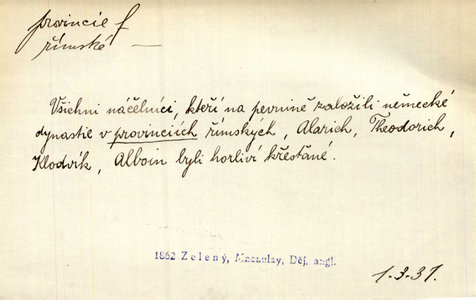 provincie f
římské —
Všichni náčelníci, kteří na pevnině založili německé
dynastie v provinciích římských, Alarich, Theodorich,
Klodvík, Alboin byli horliví křesťané.
1862 Zelený, Macaulay, Děj. angl.
1.3.37.